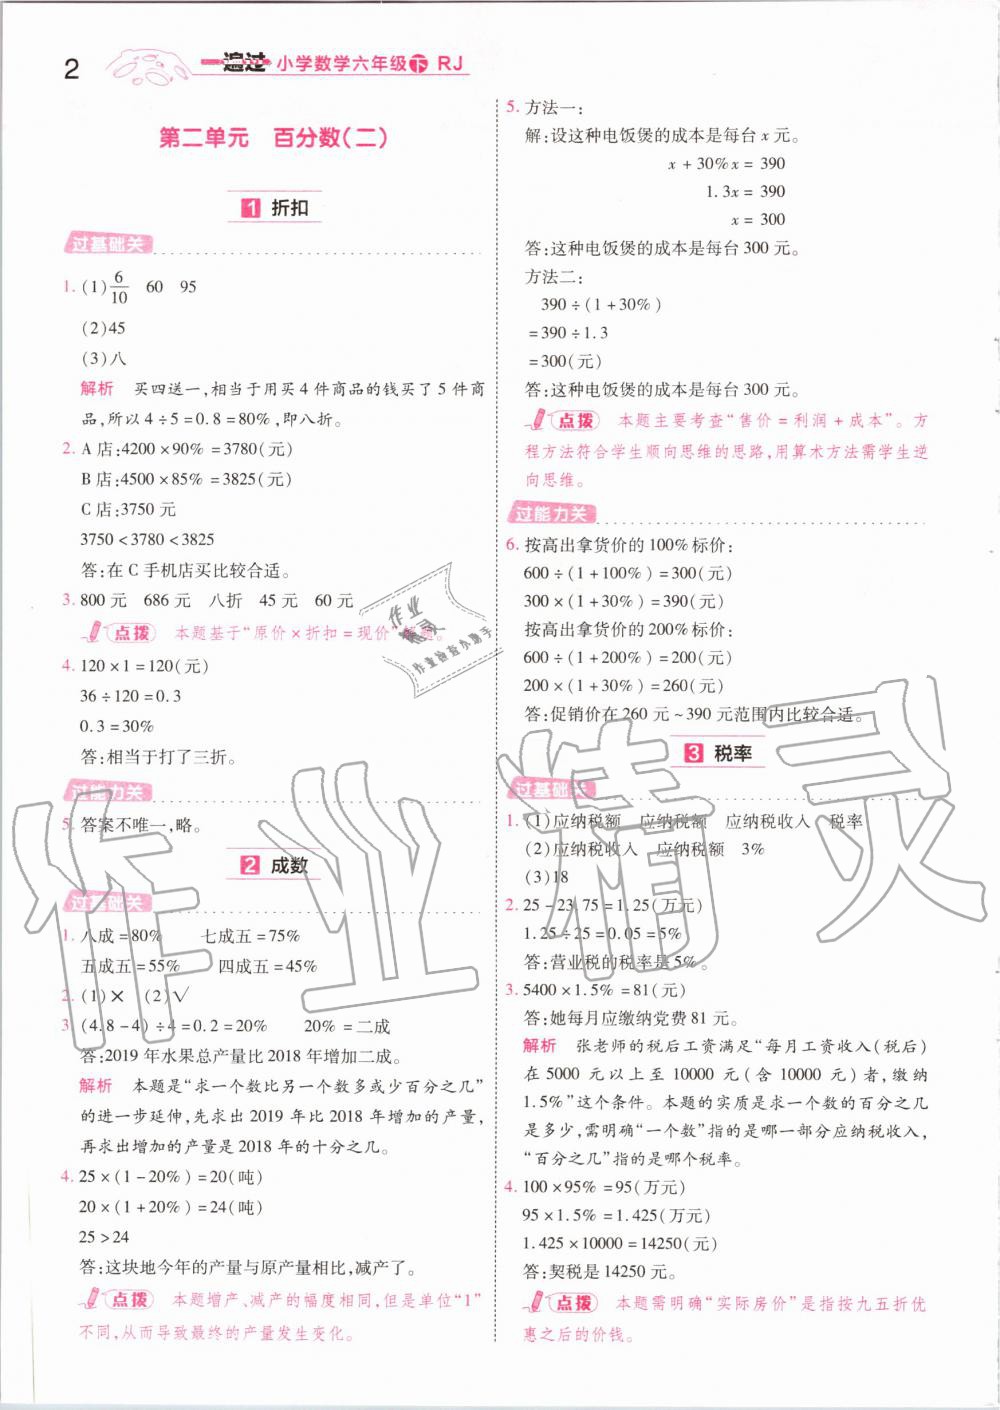 2
一遍过 小学数学六年级下 RJ
第二单元 百分数(二)
1 折扣
过基础关
1. (1)6/10 60 95
(2)45
(3)八
解析 买四送一,相当于用买4件商品的钱买了5件商
品,所以4÷5=0.8=80%,即八折。
2. A店:4200×90%=3780(元)
B店:4500×85%=3825(元)
C店:3750元
3750<3780<3825
答:在C手机店买比较合适。
3. 800元 686元 八折 45元 60元
点拨 本题基于“原价×折扣=现价”解题。
4. 120×1=120(元)
36÷120=0.3
0.3=30%
答:相当于打了三折。
过能力关
5. 答案不唯一,略。
2 成数
过基础关
1. 八成=80% 七成五=75%
五成五=55% 四成五=45%
2. (1)× (2)√
3. (4.8-4)÷4=0.2=20% 20%=二成
答:2019年水果总产量比2018年增加二成。
解析 本题是“求一个数比另一个数多或少百分之几”
的进一步延伸,先求出2019年比2018年增加的产量,
再求出增加的产量是2018年的十分之几。
4. 25×(1-20%)=20(吨)
20×(1+20%)=24(吨)
25>24
答:这块地今年的产量与原产量相比,减产了。
点拨 本题增产、减产的幅度相同,但是单位“1”
不同,从而导致最终的产量发生变化。
5. 方法一:
解:设这种电饭煲的成本是每台x元。
x+30%x=390
1.3x=390
x=300
答:这种电饭煲的成本是每台300元。
方法二:
390÷(1+30%)
=390÷1.3
=300(元)
答:这种电饭煲的成本是每台300元。
点拨 本题主要考查“售价=利润+成本”。方
程方法符合学生顺向思维的思路,用算术方法需学生逆
向思维。
过能力关
6. 按高出拿货价的100%标价:
600÷(1+100%)=300(元)
300×(1+30%)=390(元)
按高出拿货价的200%标价:
600÷(1+200%)=200(元)
200×(1+30%)=260(元)
答:促销价在260元~390元范围内比较合适。
3 税率
过基础关
1. (1)应纳税额 应纳税额 应纳税收入 税率
(2)应纳税收入 应纳税额 3%
(3)18
2. 25-23.75=1.25(万元)
1.25÷25=0.05=5%
答:营业税的税率是5%。
3. 5400×1.5%=81(元)
答:她每月应缴纳党费81元。
解析 张老师的税后工资满足“每月工资收入(税后)
在5000元以上至10000元(含10000元)者,缴纳
1.5%”这个条件。本题的实质是求一个数的百分之几
是多少,需明确“一个数”指的是哪一部分应纳税收入,
“百分之几”指的是哪个税率。
4. 100×95%=95(万元)
95×1.5%=1.425(万元)
1.425×10000=14250(元)
答:契税是14250元。
点拨 本题需明确“实际房价”是指按九五折优
惠之后的价钱。
作业精灵
作业精灵
作业检查小助手